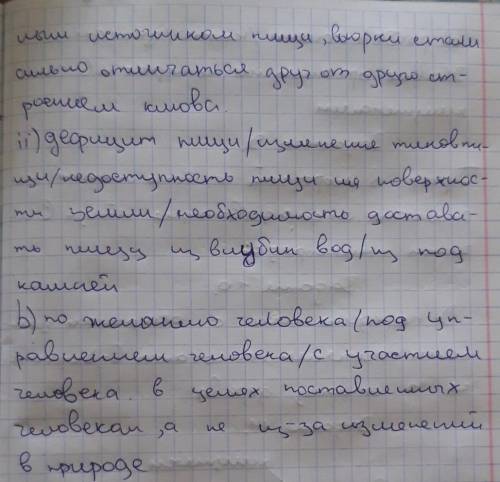 ным источником пищи, вьюрки стали
сильно отличаться друг от друго ст-
роением клюва.
ii) дефицит пищи/изменение типов пи-
щи/недоступность пищи на поверхнос-
ти земли/необходимость достава-
ть пищу из глубин вод/из под
камней
b) по желанию человека/под уп-
равлением человека/с участием
человека в целях поставленных
человекам, а не из-за изменений
в природе